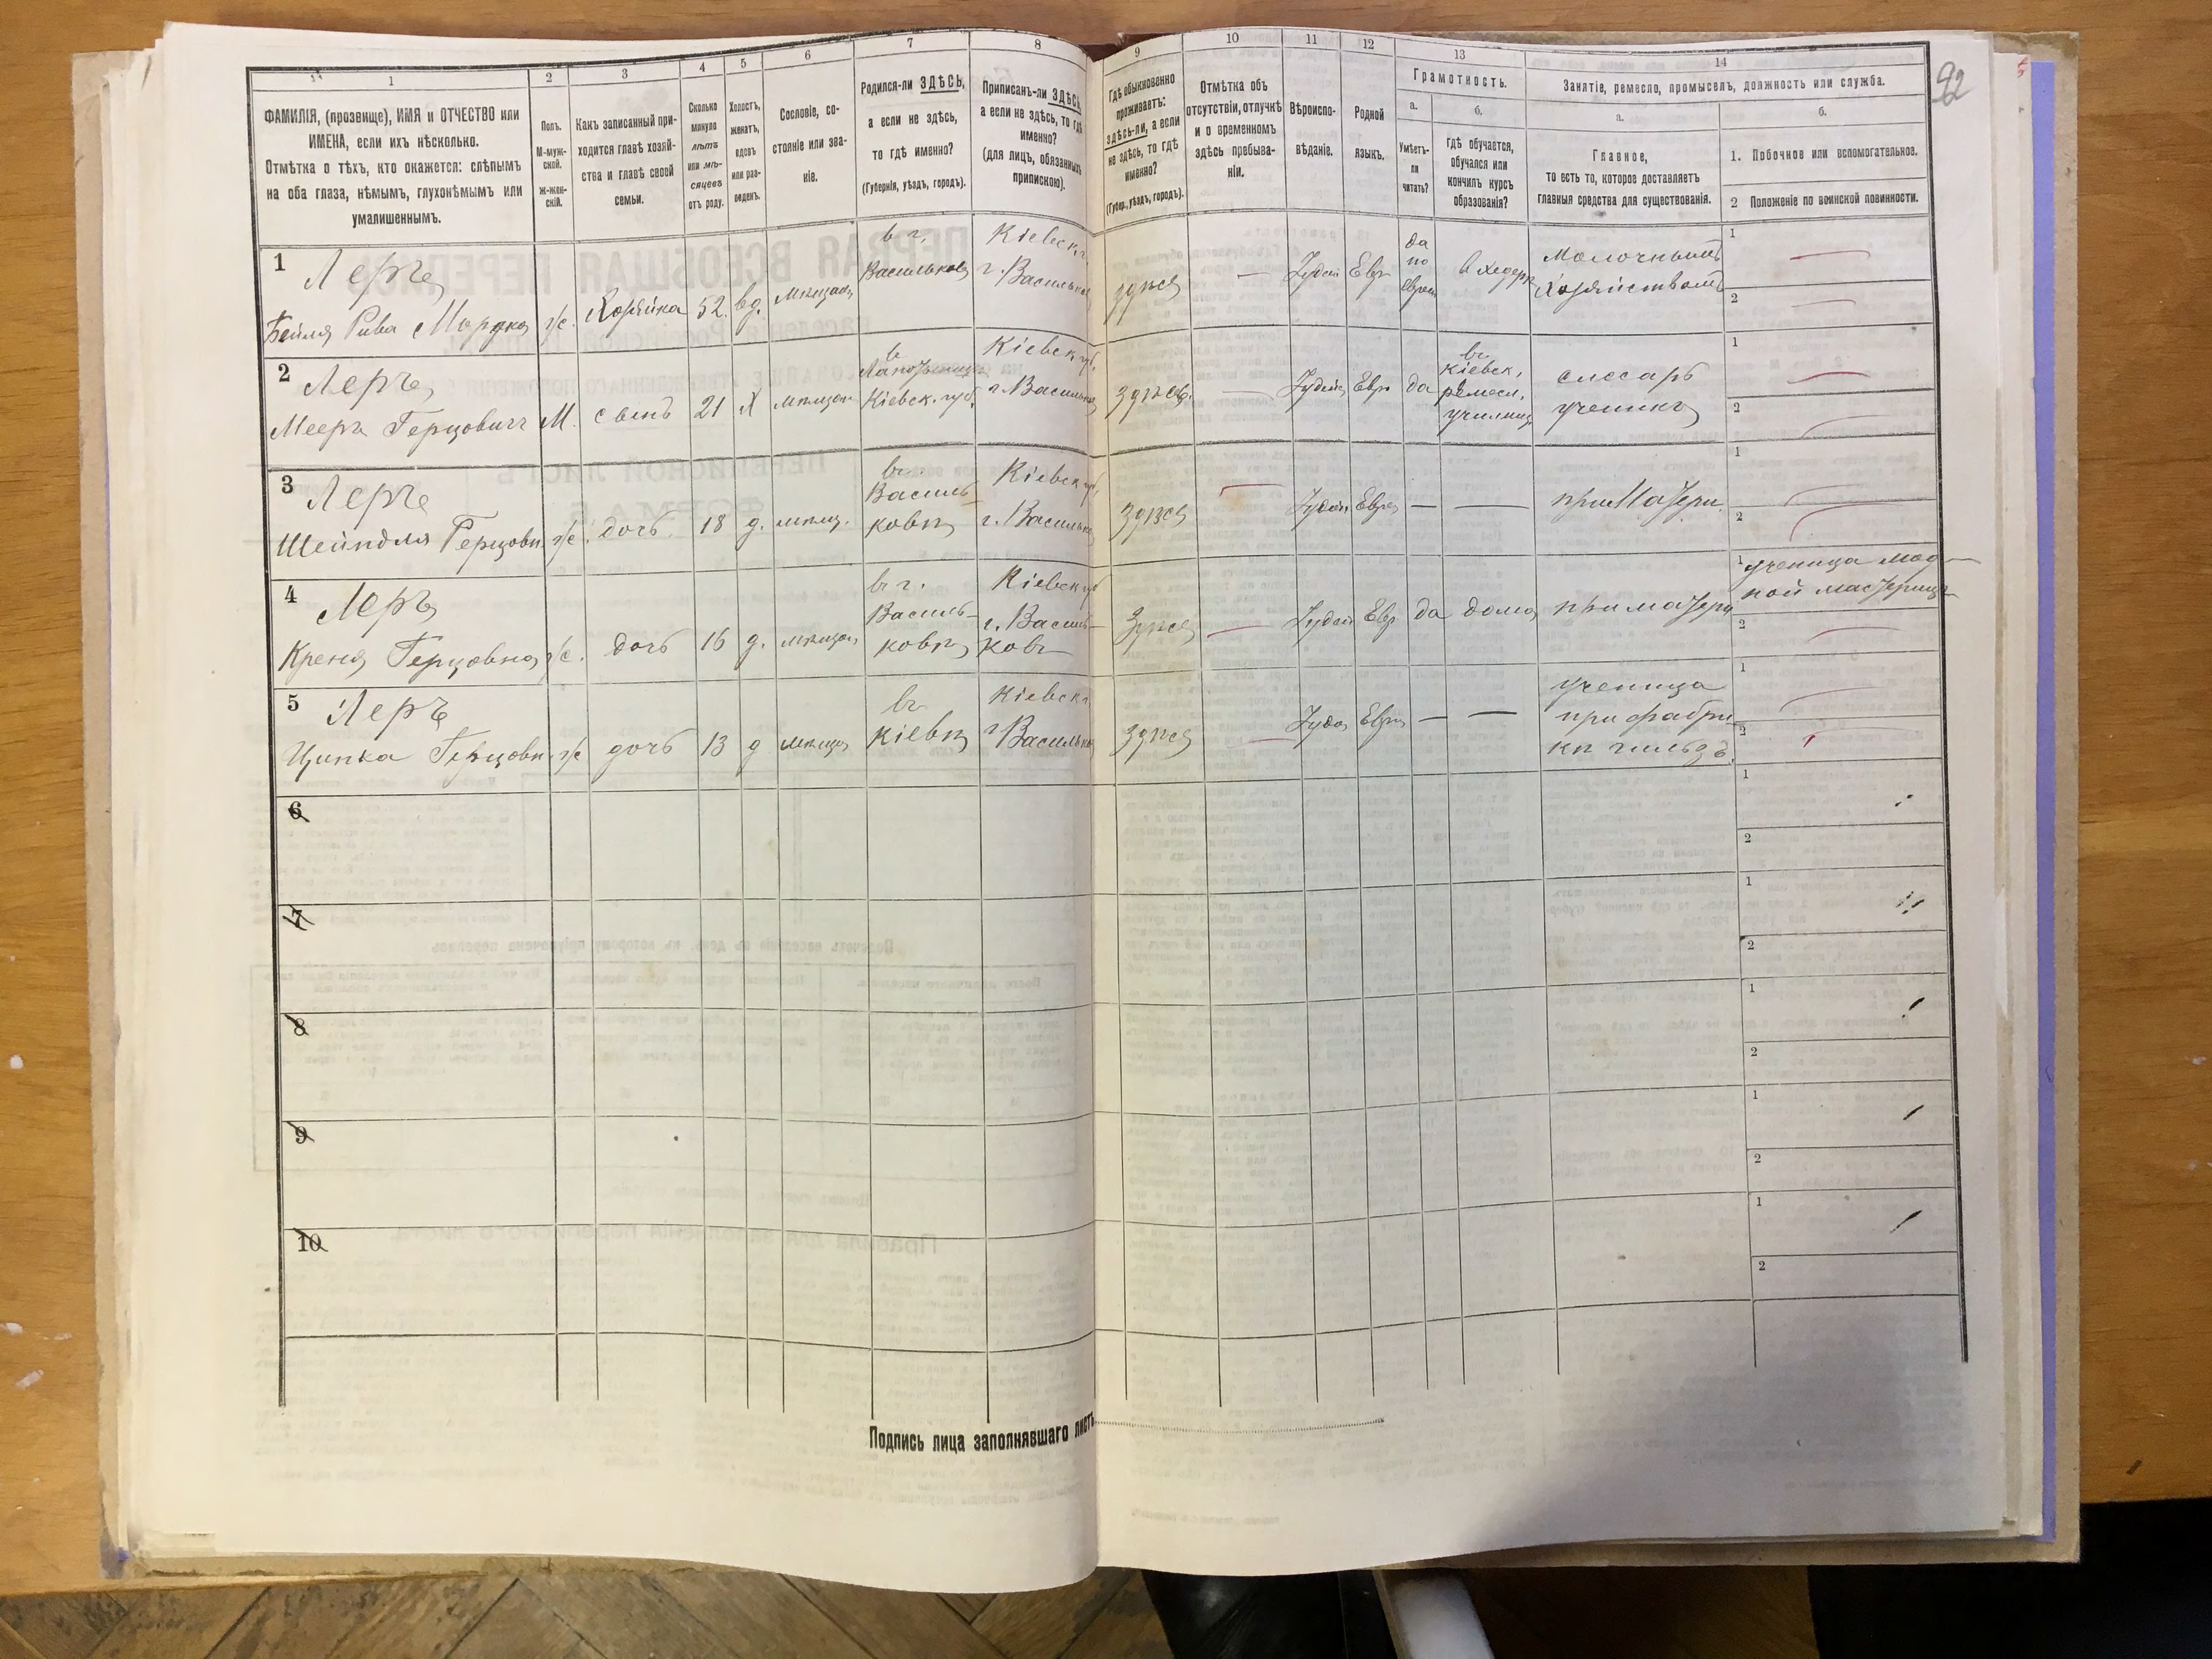 1
2
3
4
5
6
7
8
9
10
11
12
13
14
92
ФАМИЛІЯ, (прозвище), ИМЯ и ОТЧЕСТВО или
ИМЕНА, если ихъ нѣсколько.
Отмѣтка о тѣхъ, кто окажется: слѣпымъ
на оба глаза, нѣмымъ, глухонѣмымъ или
умалишеннымъ.
Полъ.
М-муж-
ской.
ж-жен-
скій.
Какъ записанный при-
ходится главѣ хозяй-
ства и главѣ своей
семьи.
Сколько
минуло
лѣтъ
или мѣ-
сяцевъ
отъ роду.
Холостъ,
женатъ,
вдовъ
или раз-
веденъ.
Сословіе, со-
стояніе или зва-
ніе.
Родился-ли ЗДѢСЬ,
а если не здѣсь,
то гдѣ именно?
(Губернія, уѣздъ, городъ).
Приписанъ-ли ЗДѢСЬ,
а если не здѣсь, то гдѣ
именно?
(для лицъ, обязанныхъ
припискою).
Гдѣ обыкновенно
проживаетъ:
здѣсь-ли, а если
не здѣсь, то гдѣ
именно?
(Губер., уѣздъ, городъ).
Отмѣтка объ
отсутствіи, отлучкѣ
и о временномъ
здѣсь пребыва-
ніи.
Вѣроиспо-
вѣданіе.
Родной
языкъ.
Грамотность.
а.
Умѣетъ-
ли
читать?
б.
гдѣ обучается,
обучался или
кончилъ курсъ
образованія?
Занятіе, ремесло, промыселъ, должность или служба.
а.
Главное,
то есть то, которое доставляетъ
главныя средства для существованія.
б.
1. Побочное или вспомогательное.
2 Положеніе по воинской повинности.
1
Леръ
Бейля Рива
ж.
Хозяйка
52.
вд.
мѣщан
в г.
Васильковѣ
Кіевск. г.
г. Васильков
здѣсь
—
Іудей
Евр
да
по
еврей
в хедерѣ
Молочнымъ
хозяйствомъ
1
—
2
—
2
Леръ
Мееръ Герцовичъ
М.
сынъ
21
Х
мѣщан
в
Кіевск. губ.
Кіевск. губ.
г. Васильков
здѣсь
—
Іудей
Евр
да
въ
Кіевск.
ремесл.
училищ
слесарь
ученикъ
1
—
2
—
3
Леръ
Шейндля Герцовн
ж.
дочь
18
д.
мѣщ.
въ
Василь-
ковѣ
Кіевск губ.
г. Васильков
здѣсь
—
Іудей
Евре
—
—
при Матери
1
—
2
—
4
Леръ
Креня Герцовна
ж.
дочь
16
д.
мѣщан
въ г.
Василь-
ковѣ
Кіевск губ
г. Василь-
ковъ
здѣсь
—
Іудей
Евр
да
дома
при матери
1 ученица мод-
ной мастерицы
2
—
5
Леръ
Ципка Герцовн
ж
дочь
13
д
мѣщан
въ
Кіевѣ
Кіевск.
г. Васильков
здѣсь
—
Іудей
Евре
—
—
ученица
при фабри-
кѣ гильзъ.
1
—
2
6
1
2
7
1
2
8
1
2
9
1
2
10
1
2
Подпись лица заполнявшаго листъ